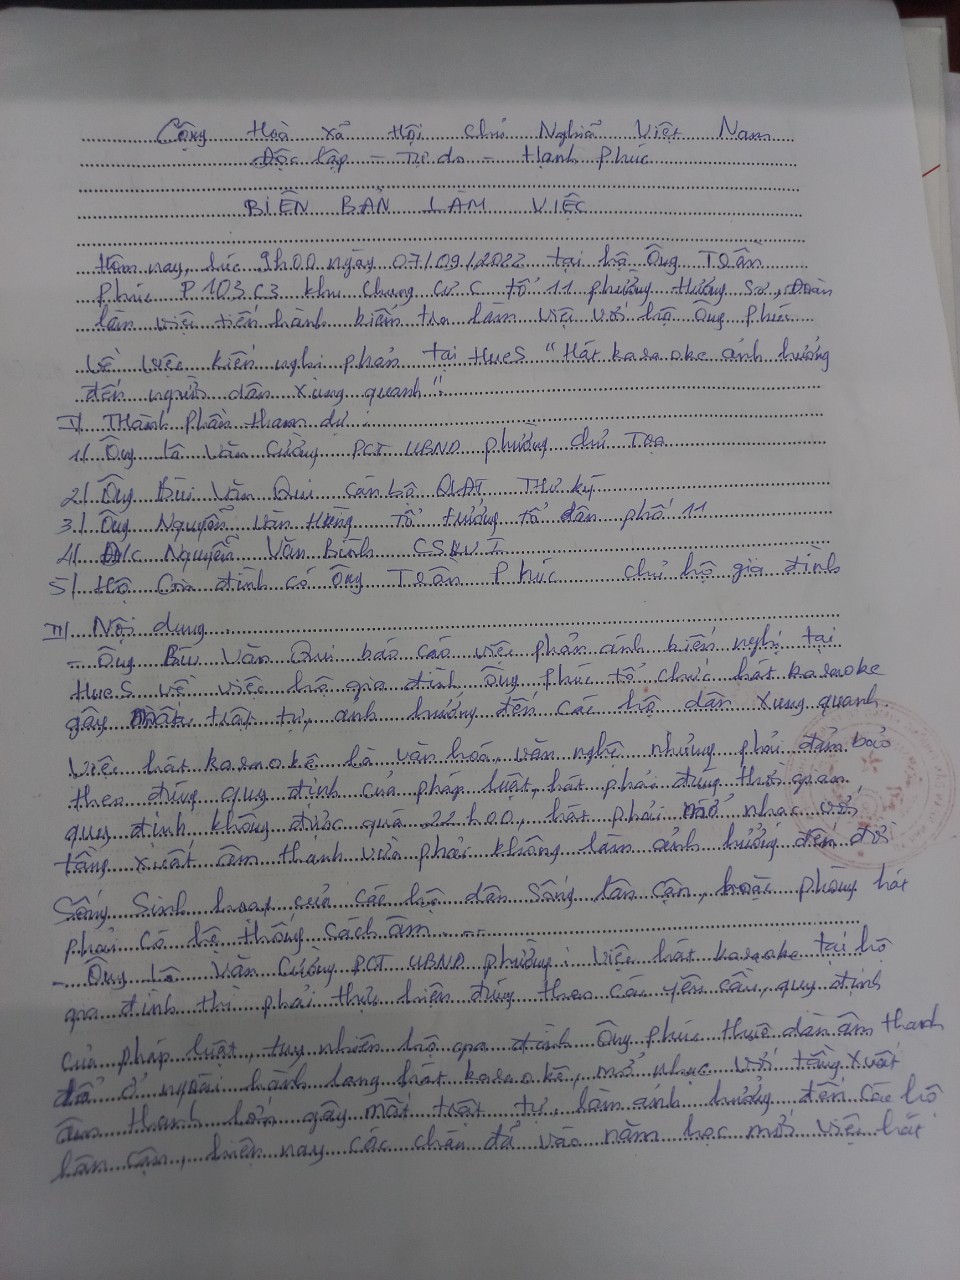 Cộng Hoà xã Hội chủ Nghĩa Việt Nam
Độc lập - Tự do - Hạnh phúc
BIÊN BẢN LÀM VIỆC
Hôm nay, lúc 9h00 ngày 07/09/2022 tại hộ Ông Trần
Phúc P103 C3 khu chung cư C tổ 11 phường Hương Sơ, Đoàn
làm việc tiến hành kiểm tra làm việc với hộ ông Phúc
về việc kiến nghị phản tại HueS "Hát karaoke ảnh hưởng
đến người dân xung quanh"
I/ Thành phần tham dự:
1/ Ông Lê Văn Cường PCT UBND phường chủ Tọa
2/ Ông Bùi Văn Qui cán bộ Thư ký
3/ Ông Nguyễn Văn Hùng tổ trưởng tổ dân phố 11
4/ Đ/c Nguyễn Văn Bình CSKV
5/ Hộ Gia đình có Ông Trần Phúc chủ hộ gia đình
II/ Nội dung
- Ông Bùi Văn Qui báo cáo việc phản ánh kiến nghị tại
HueS về việc hộ gia đình, Ông Phúc tổ chức hát karaoke
gây mất trật tự, ảnh hưởng đến các hộ dân xung quanh.
Việc hát karaokê là văn hoá, văn nghệ nhưng phải đảm bảo
theo đúng quy định của pháp luật, hát phải đúng thời gian
quy định không được quá 22h00, hát phải mở nhạc với
tầng xuất âm thanh vừa phải không làm ảnh hưởng đến đời
Sống Sinh hoạt của các hộ dân Sống lân cận, hoặc phòng hát
phải có hệ thống cách âm...
- Ông Lê Văn Cường PCT UBND phường: Việc hát karaoke tại hộ
gia đình thì phải thực hiện đúng theo các yêu cầu, quy định
của pháp luật, tuy nhiên hộ gia đình Ông Phúc dàn âm thanh
để ở ngoài hành lang hát karaokê, mở nhạc với tầng xuất
âm thanh lớn gây mất trật tự, làm ảnh hưởng đến các hộ
lân cận, hiện nay các cháu đã vào năm học mới việc hát